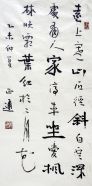 遠上寒山石徑斜白雲
深處有人家停車坐愛楓
林晚霜葉紅於二月花
乙未仲夏